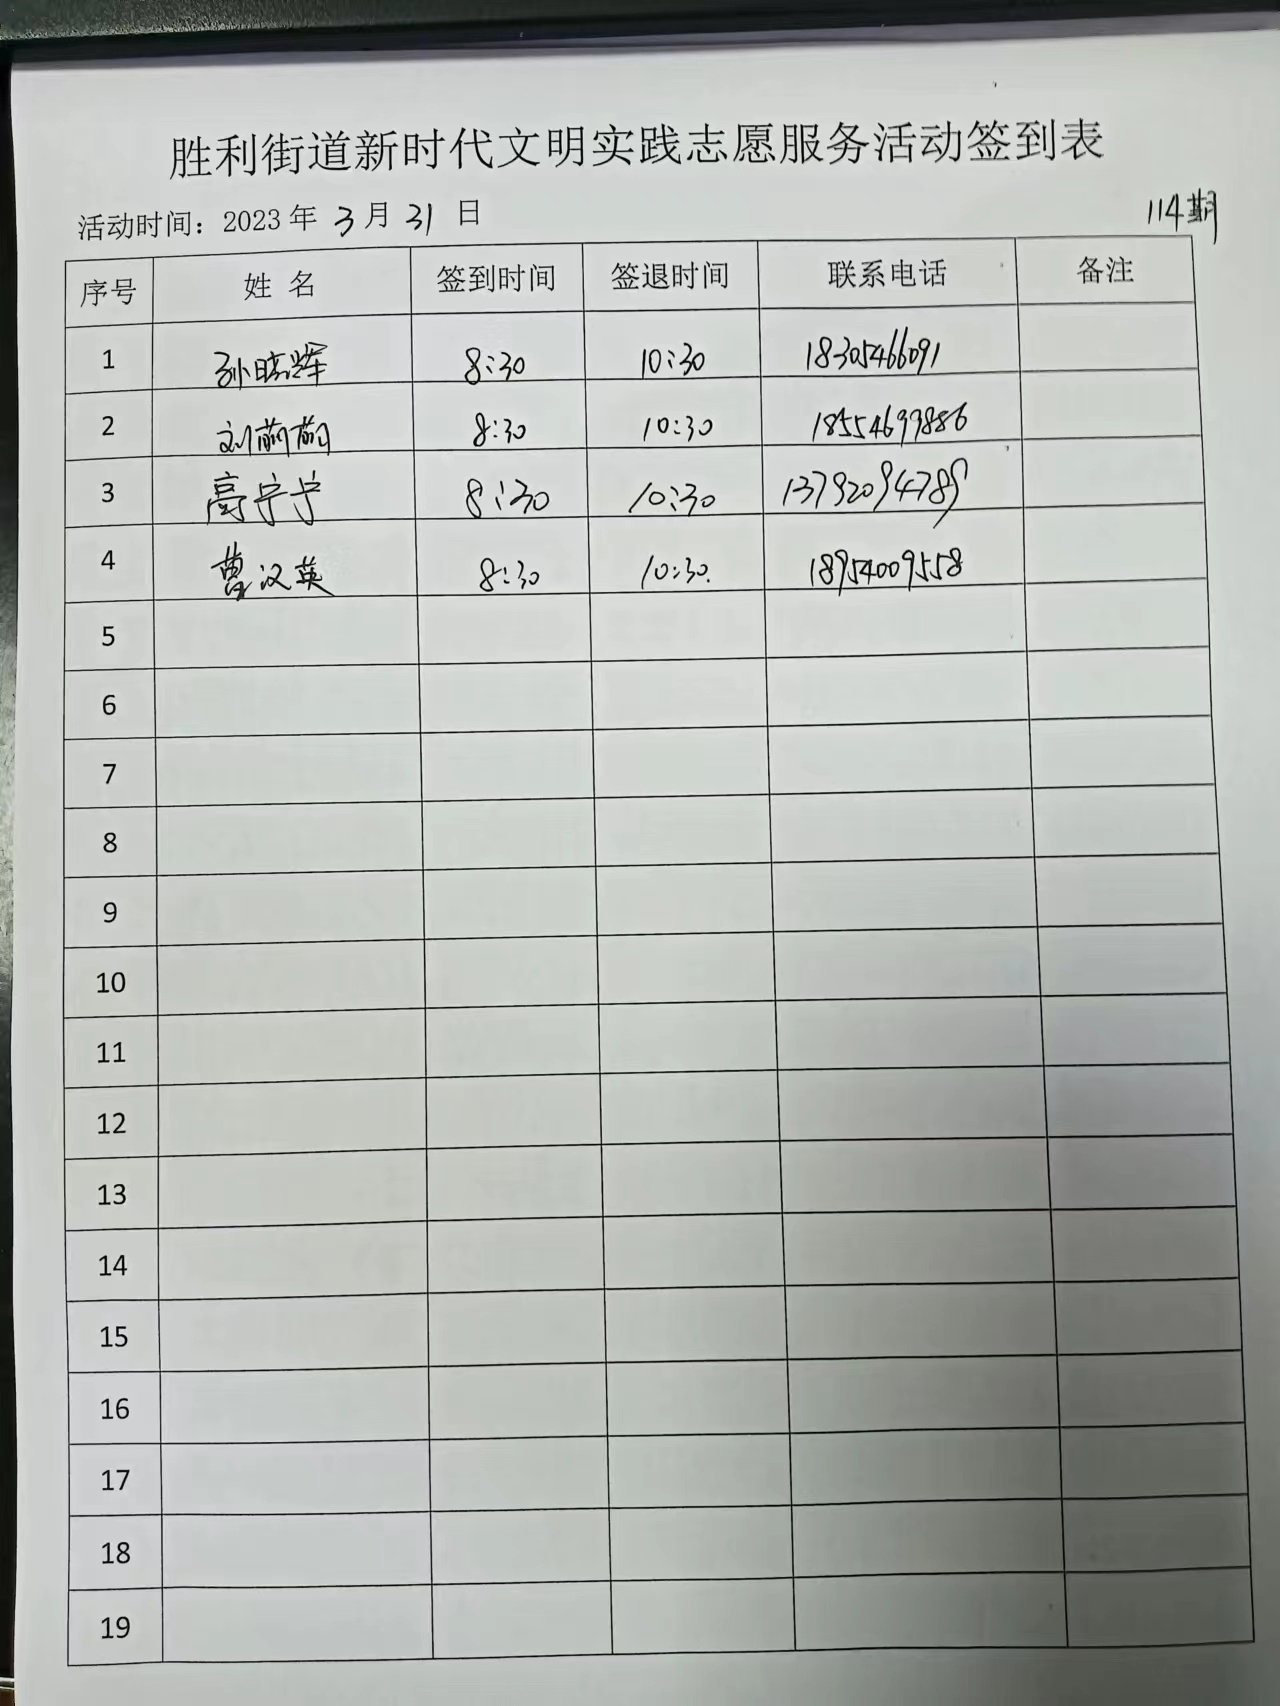 胜利街道新时代文明实践志愿服务活动签到表
活动时间：2023年 3月 31 日 114期
序号 姓 名 签到时间 签退时间 联系电话 备注
1 孙晓辉 8:30 10:30 18305466091
2 刘萌萌 8:30 10:30 18554693886
3 高宁宁 8:30 10:30 13792094789
4 曹汉英 8:30 10:30. 18954009558
5
6
7
8
9
10
11
12
13
14
15
16
17
18
19